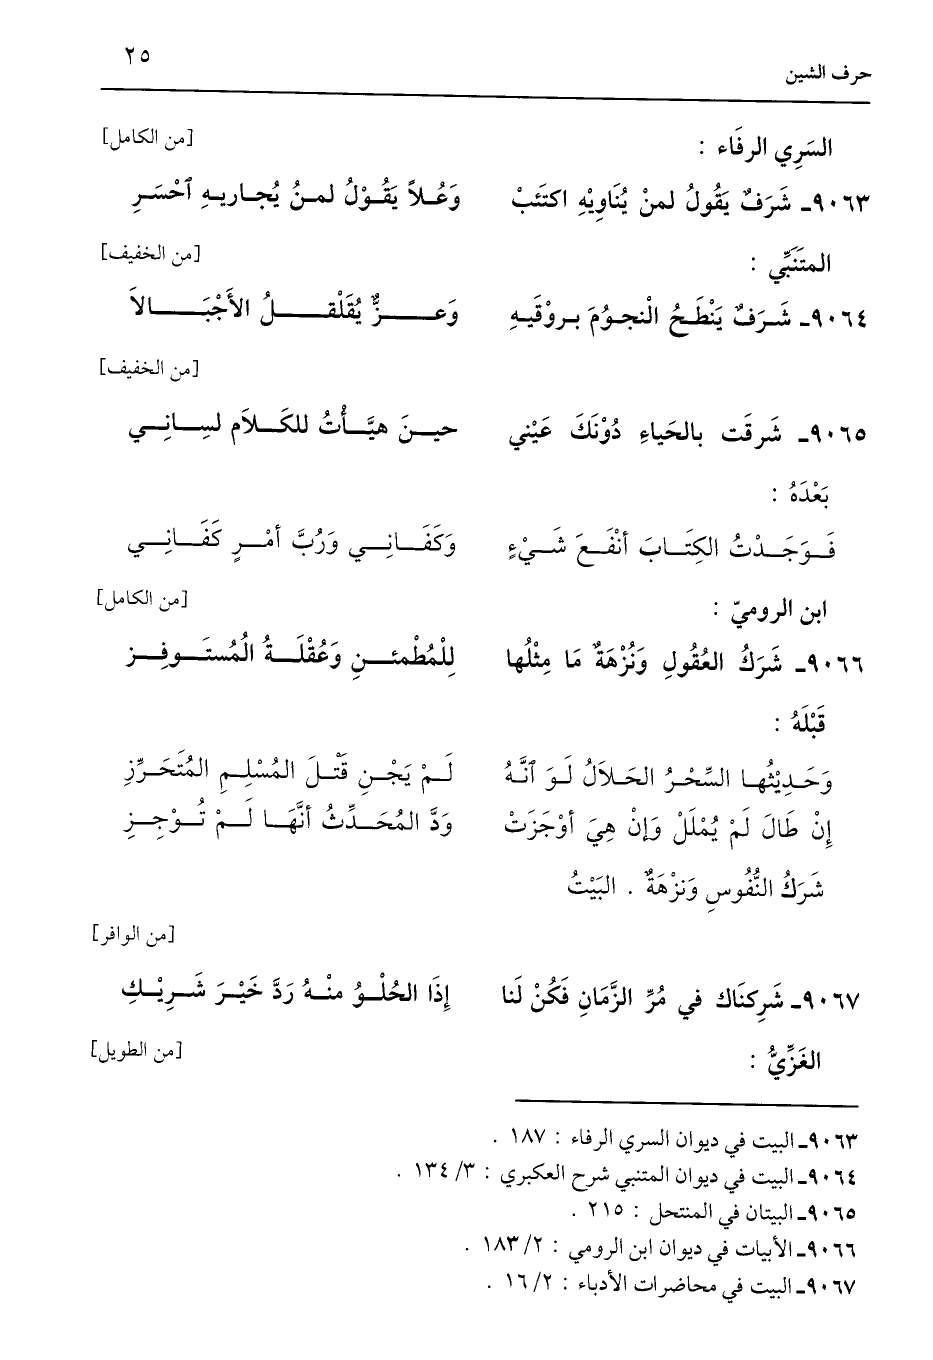 ٢٥
حرف الشين
السَرِي الرفَاء : [من الكامل]
٩٠٦٣ـ شَرَفٌ يَقُولُ لمنْ يُنَاوِيْهِ اكتَئبْ وَعُـلاً يَقُـوْلُ لمـنُ يُجـاريـهِ ٱحْسَـرِ
المتَنَبِّي : [من الخفيف]
٩٠٦٤ـ شَـرَفٌ يَنْطَـحُ الْنجـوُمَ بـروْقَيـهِ وَعـــزٌّ يُقَلْقــلُ الأَجْبَــالاَ
[من الخفيف]
٩٠٦٥ـ شَرقَت بالحَياءِ دُوْنَكَ عَيْني حيـنَ هيَّـأْتُ للكَـلاَم لسِـانِـي
بَعْدَهُ :
فَـوَجَـدْتُ الكِتَـابَ أنْفَـعَ شَـيْءٍ وَكَفَـانِـي وَرُبَّ أمْـرٍ كَفَـانِـي
ابن الروميّ : [من الكامل]
٩٠٦٦ـ شَرَكُ العُقُولِ وَنُزْهَةٌ مَا مِثْلُها لِلْمُطْمئـنِ وَعُقْلَـةُ الْمُستَـوفِـز
قَبْلَهُ :
وَحَـدِيْثُهـا السِّحْـرُ الحَـلاَلُ لَـوَ ٱنَّـهُ لَـمْ يَجْـنِ قَتْـلَ المُسْلِـمِ المُتَحَـرِّزِ
إنْ طَالَ لَمْ يُمْلَلْ وَإنْ هِيَ أوْجَزَتْ وَدَّ المُحَـدِّثُ أنَّهَـا لَـمْ تُـوْجِـزِ
شَرَكُ النُّفُوسِ وَنزْهَةٌ . البَيْتُ
[من الوافر]
٩٠٦٧ـ شَركنَاك في مُرِّ الزَّمَانِ فَكُنْ لَنا إذَا الحُلْـوُ منْـهُ رَدَّ خَيْـرَ شَـرِيْـكِ
الغَزِّيُّ : [من الطويل]
٩٠٦٣ـ البيت في ديوان السري الرفاء : ١٨٧ .
٩٠٦٤ـ البيت في ديوان المتنبي شرح العكبري : ٣/ ١٣٤ .
٩٠٦٥ـ البيتان في المنتحل : ٢١٥ .
٩٠٦٦ـ الأبيات في ديوان ابن الرومي : ٢/ ١٨٣ .
٩٠٦٧ـ البيت في محاضرات الأدباء : ٢/ ١٦ .